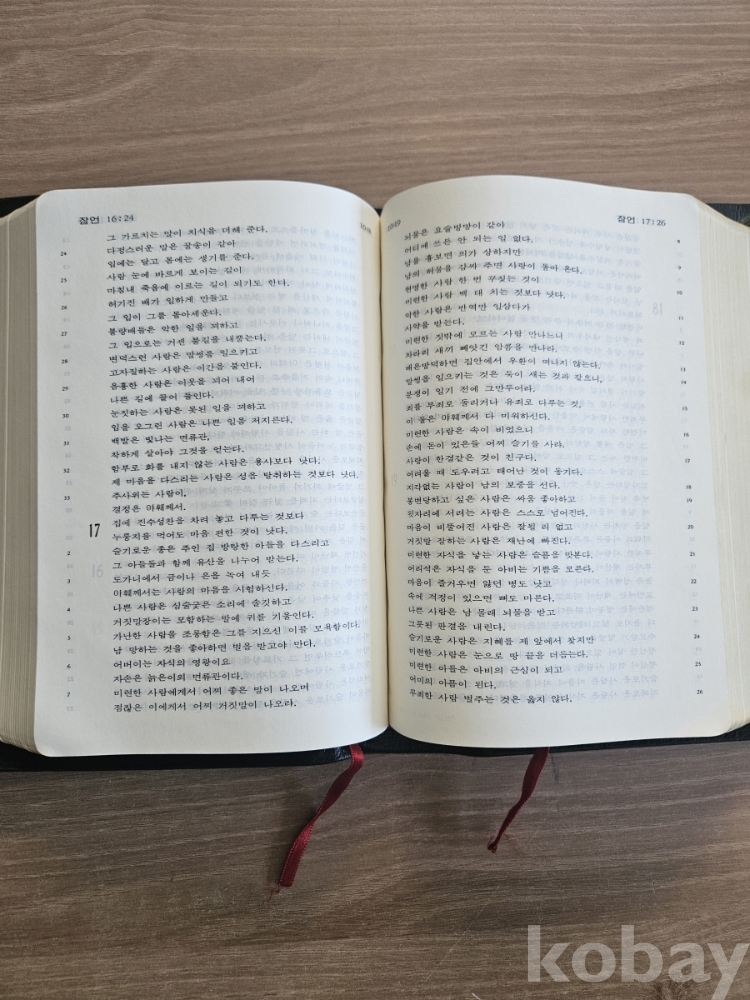 잠언 16:24
그 가르치는 말이 지식을 더해 준다.
24 다정스러운 말은 꿀송이 같아
입에는 달고 몸에는 생기를 준다.
25 사람 눈에 바르게 보이는 길이
마침내 죽음에 이르는 길이 되기도 한다.
26 허기진 배가 일하게 만들고
그 입이 그를 몰아세운다.
27 불량배들은 악한 일을 꾀하고
그 입으로는 거센 불길을 내뿜는다.
28 변덕스런 사람은 말썽을 일으키고
고자질하는 사람은 이간을 붙인다.
29 음흉한 사람은 이웃을 꾀어 내어
나쁜 길에 끌어 들인다.
30 눈짓하는 사람은 못된 일을 꾀하고
입을 오그린 사람은 나쁜 일을 저지른다.
31 백발은 빛나는 면류관,
착하게 살아야 그것을 얻는다.
32 함부로 화를 내지 않는 사람은 용사보다 낫다.
제 마음을 다스리는 사람은 성을 탈취하는 것보다 낫다.
33 주사위는 사람이,
결정은 야훼께서.
17 집에 진수성찬을 차려 놓고 다투는 것보다
누룽지를 먹어도 마음 편한 것이 낫다.
2 슬기로운 종은 주인 집 방탕한 아들을 다스리고
그 아들들과 함께 유산을 나누어 받는다.
3 도가니에서 금이나 은을 녹여 내듯
야훼께서는 사람의 마음을 시험하신다.
4 나쁜 사람은 심술궂은 소리에 솔깃하고
거짓말장이는 모함하는 말에 귀를 기울인다.
5 가난한 사람을 조롱함은 그를 지으신 이를 모욕함이다.
남 망하는 것을 좋아하면 벌을 받고야 만다.
6 어버이는 자식의 영광이요
자손은 늙은이의 면류관이다.
7 미련한 사람에게서 어찌 좋은 말이 나오며
점잖은 이에게서 어찌 거짓말이 나오랴.
1049 잠언 17:26
뇌물은 요술방망이 같아 8
어디에 쓰든 안 되는 일 없다.
남을 흉보면 의가 상하지만 9
남의 허물을 감싸 주면 사랑이 돌아 온다.
현명한 사람 한 번 꾸짖는 것이 10
미련한 사람 백 대 치는 것보다 낫다.
악한 사람은 반역만 일삼다가 11
사약을 받는다.
미련한 짓밖에 모르는 사람 만나느니 12
차라리 새끼 빼앗긴 암콤을 만나라.
배은망덕하면 집안에서 우환이 떠나지 않는다. 13
말썽을 일으키는 것은 둑이 새는 것과 같으니, 14
분쟁이 일기 전에 그만두어라.
죄를 무죄로 돌리거나 유죄로 다루는 것, 15
이 둘은 야훼께서 다 미워하신다.
미련한 사람은 속이 비었으니 16
손에 돈이 있은들 어찌 슬기를 사랴.
사랑이 한결같은 것이 친구다. 17
어려울 때 도우려고 태어난 것이 동기다.
지각없는 사람이 남의 보증을 선다. 18
봉변당하고 싶은 사람은 싸움 좋아하고 19
윗자리에 서려는 사람은 스스로 넘어진다.
마음이 비뚤어진 사람은 잘될 리 없고 20
거짓말 잘하는 사람은 재난에 빠진다.
미련한 자식을 낳는 사람은 슬픔을 맛본다. 21
어리석은 자식을 둔 아비는 기쁨을 모른다.
마음이 즐거우면 앓던 병도 낫고 22
속에 걱정이 있으면 뼈도 마른다.
나쁜 사람은 남 몰래 뇌물을 받고 23
그릇된 판결을 내린다.
슬기로운 사람은 지혜를 제 앞에서 찾지만 24
미련한 사람은 눈으로 땅 끝을 더듬는다.
미련한 아들은 아비의 근심이 되고 25
어미의 아픔이 된다.
무죄한 사람 벌주는 것은 옳지 않다. 26
kobay